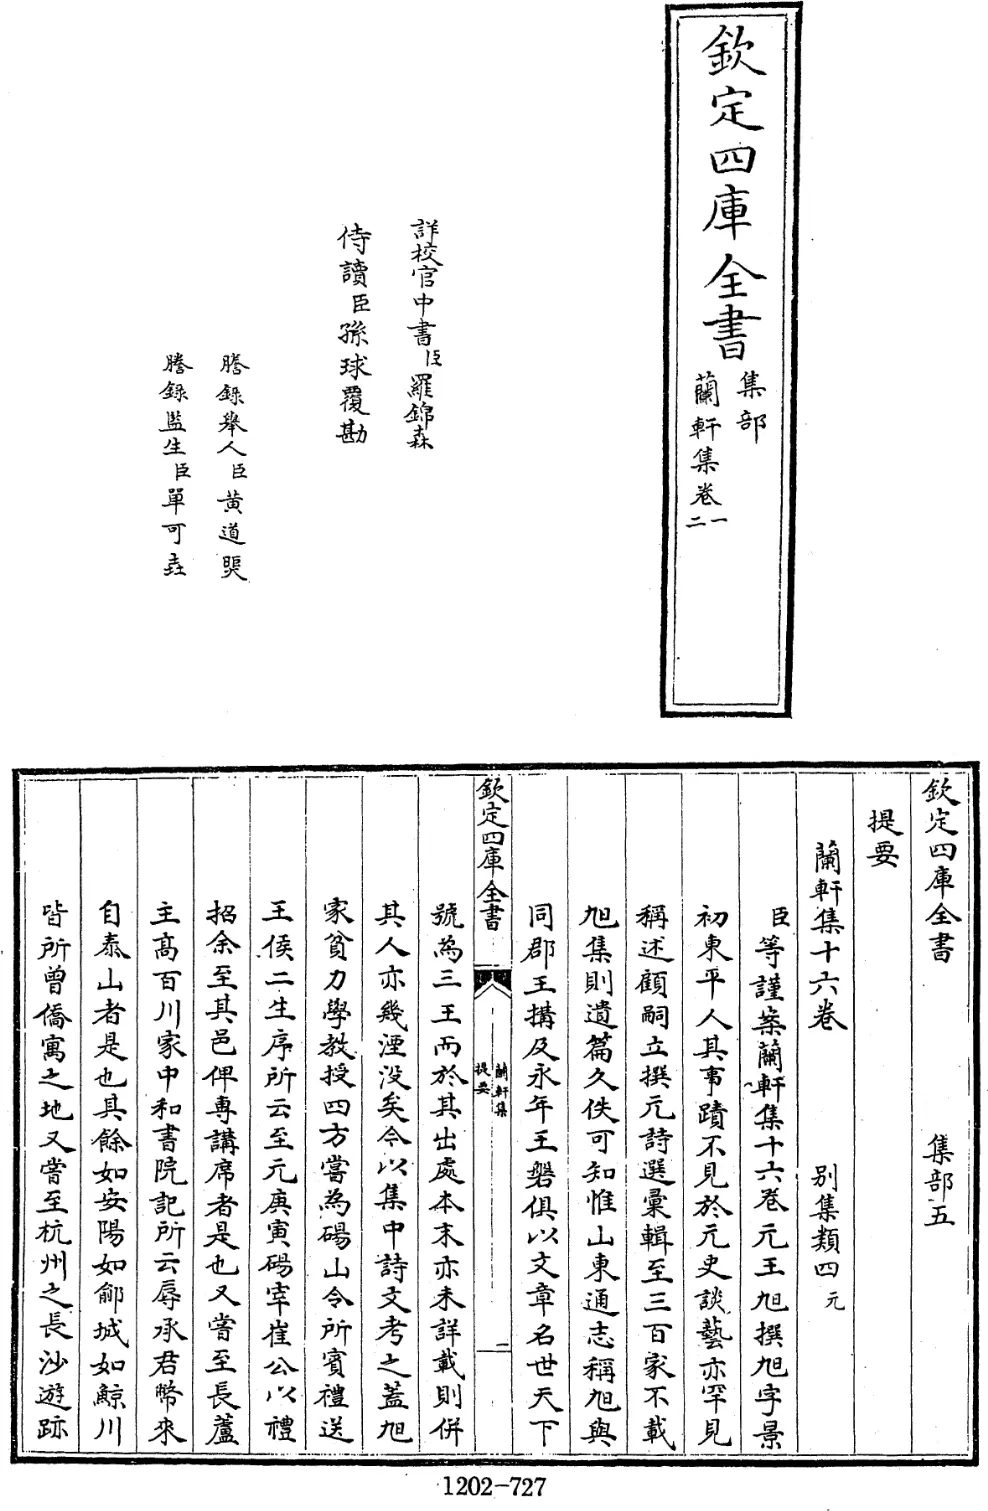 欽定四庫全書
集部
蘭軒集卷一
二
詳校官中書臣羅錦森
侍讀臣孫球覆勘
謄錄舉人臣黄道煚
謄錄監生臣單可垚
欽定四庫全書 集部五
提要
蘭軒集十六卷 别集類四元
臣等謹案蘭軒集十六卷元王旭撰旭字景
初東平人其事蹟不見於元史談藝亦罕見
稱述顧嗣立撰元詩選彙輯至三百家不載
旭集則遺篇久佚可知惟山東通志稱旭與
同郡王搆及永年王磐俱以文章名世天下
欽定四庫全書 蘭軒集 提要 一
號為三王而於其出處本末亦未詳載則併
其人亦幾湮没矣今以集中詩文考之蓋旭
家貧力學教授四方嘗為碭山令所賓禮送
王侯二生序所云至元庚寅碭宰崔公以禮
招余至其邑俾專講席者是也又嘗至長蘆
主高百川家中和書院記所云辱承君幣來
自泰山者是也其餘如安陽如鄃城如鯨川
皆所曾僑寓之地又嘗至杭州之長沙遊跡
1202-727